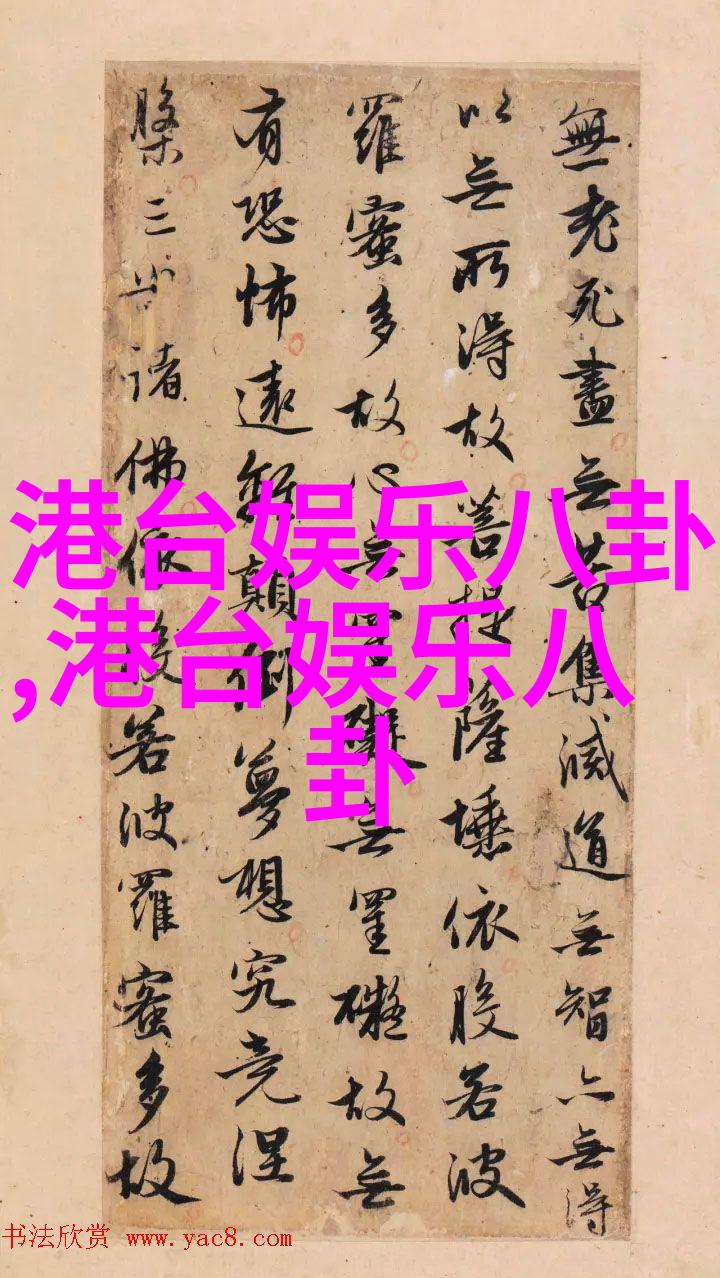 無老死盡无苦集滅道无智亦无得
以无所得故菩提薩埵依般若波
羅蜜多故心无罣礙无罣礙故无
有恐怖遠離顛倒夢想究竟涅
槃三世諸佛依般若波羅蜜多故
港台娱乐八卦
,港台娱乐八
卦
书法欣赏 www.yac8.com